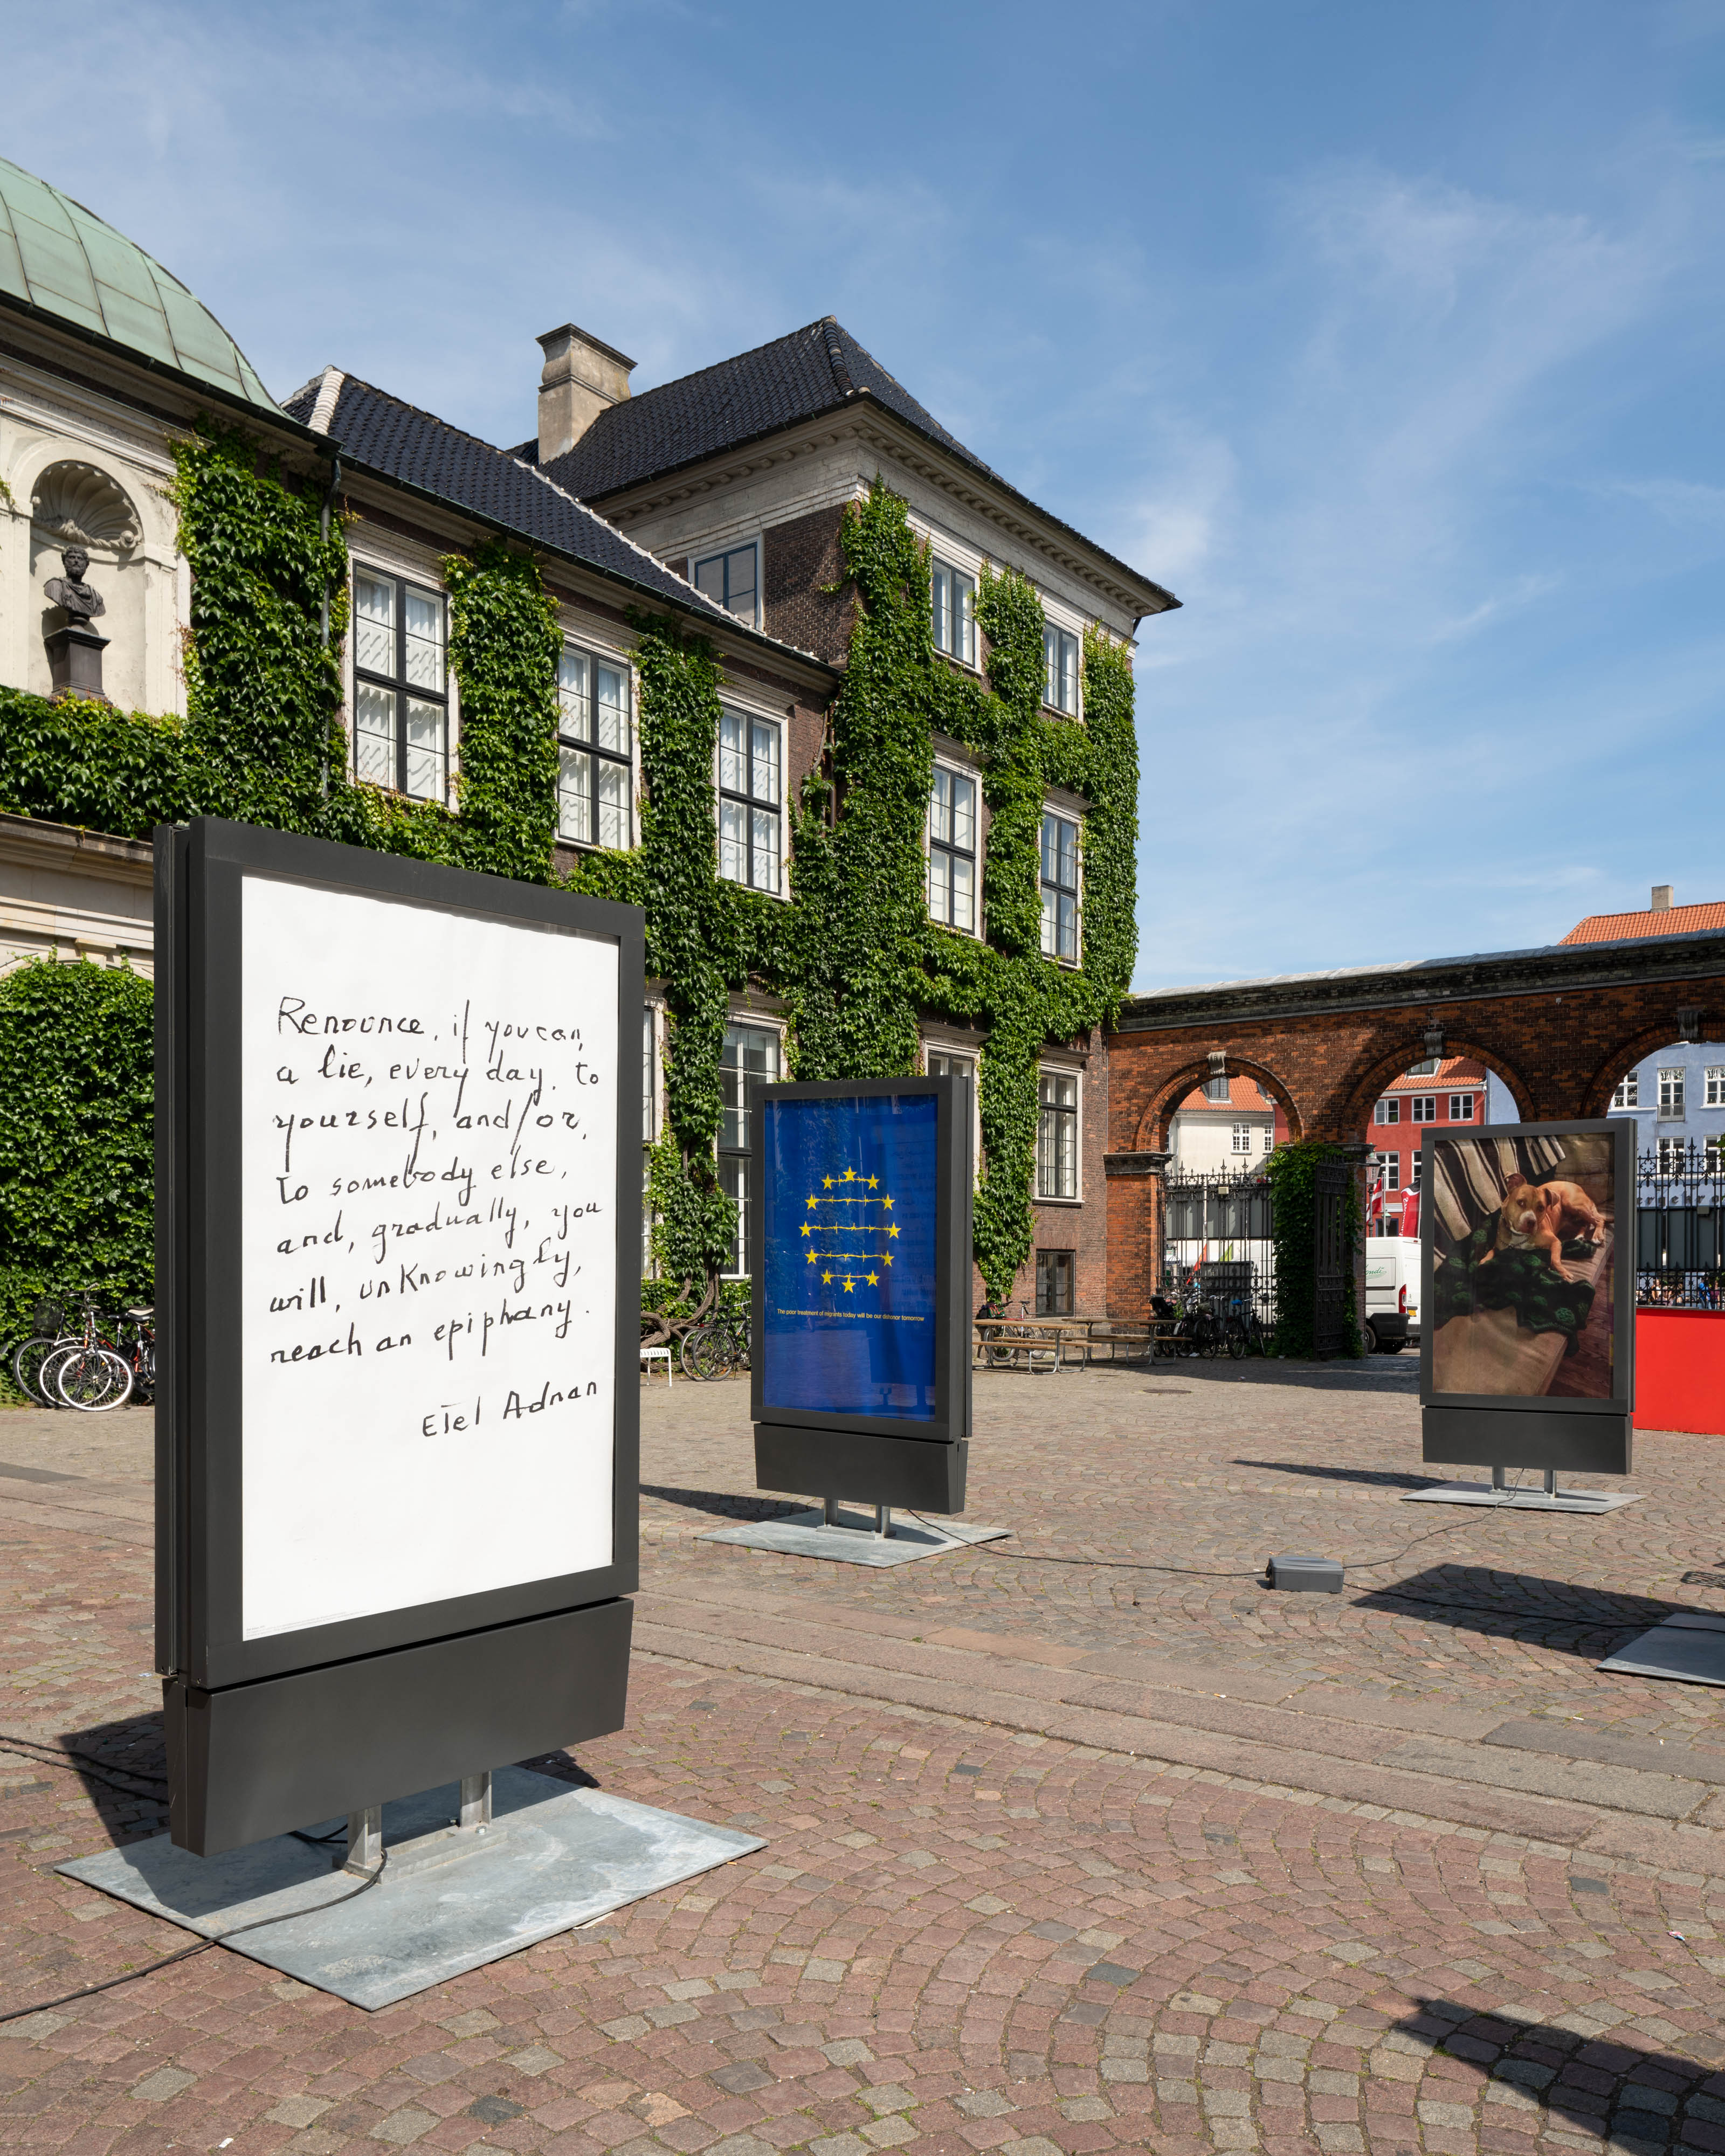 Renounce, if you can,
a lie, every day, to
yourself, and/or,
to somebody else,
and, gradually, you
will, unknowingly,
reach an epiphany.
Etel Adnan
The poor treatment of migrants today will be our dishonor tomorrow